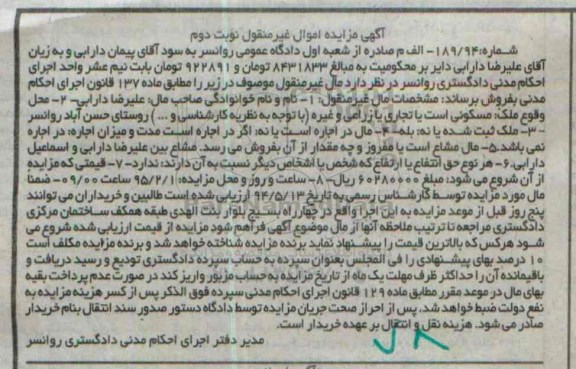 آگهی مزایده اموال غیرمنقول نوبت دوم
شماره:۱۸۹/۹۴- الف م صادره از شعبه اول دادگاه عمومی روانسر به سود آقای پیمان دارابی و به زیان
آقای علیرضا دارابی دایر بر محکومیت به مبالغ ۸۴۳۱۸۳۳ تومان و ۹۲۲۸۹۱ تومان بابت نیم عشر واحد اجرای
احکام مدنی دادگستری روانسر در نظر دارد مال غیر منقول موصوف در زیر را مطابق ماده ۱۳۷ قانون اجرای احکام
مدنی بفروش برساند: مشخصات مال غیرمنقول: ۱- نام و نام خوانوادگی صاحب مال: علیرضا دارابی- ۲- محل
وقوع ملک: مسکونی است یا تجاری یا زراعی و غیره (با توجه به نظریه کارشناسی و ...) روستای حسن آباد روانسر
-۳- ملک ثبت شده یا نه: بله-۴- مال در اجاره است یا نه: اگر در اجاره است مدت و میزان اجاره: در اجاره
نمی باشد.۵- مال مشاع است یا مفروز و چه مقدار از آن بفروش می رسد. مشاع بین علیرضا دارابی و اسماعیل
دارابی.۶- هر نوع حق انتفاع یا ارتفاع که شخص یا اشخاص دیگر نسبت به آن دارند: ندارد-۷- قیمتی که مزایده
از آن شروع می شود: مبلغ ۶۰۲۸۰۰۰۰ ریال-۸- ساعت و روز و محل مزایده: ۹۵/۲/۱ ساعت ۰۹/۰۰- ضمنا
مال مورد مزایده توسط کارشناس رسمی به تاریخ ۹۴/۵/۱۳ ارزیابی شده است طالبین و خریداران می توانند
پنج روز قبل از موعد مزایده به این اجرا واقع در چهارراه بسیج بلوار بنت الهدی طبقه همکف ساختمان مرکزی
دادگستری مراجعه تا ترتیب ملاحظه آنها از مال موضوع آگهی فراهم شود مزایده از قیمت ارزیابی شده شروع می
شود هرکس که بالاترین قیمت را پیشنهاد نماید برنده مزایده شناخته خواهد شد و برنده مزایده مکلف است
۱۰ درصد بهای پیشنهادی را فی المجلس بعنوان سپرده به حساب سپرده دادگستری تودیع و رسید دریافت و
باقیمانده آن را حداکثر ظرف مهلت یک ماه از تاریخ مزایده به حساب مزبور واریز کند در صورت عدم پرداخت بقیه
بهای مال در موعد مقرر مطابق ماده ۱۲۹ قانون اجرای احکام مدنی سپرده فوق الذکر پس از کسر هزینه مزایده به
نفع دولت ضبط خواهد شد، پس از احراز صحت جریان مزایده توسط دادگاه دستور صدور سند انتقال بنام خریدار
صادر می شود. هزینه نقل و انتقال بر عهده خریدار است.
مدیر دفتر اجرای احکام مدنی دادگستری روانسر